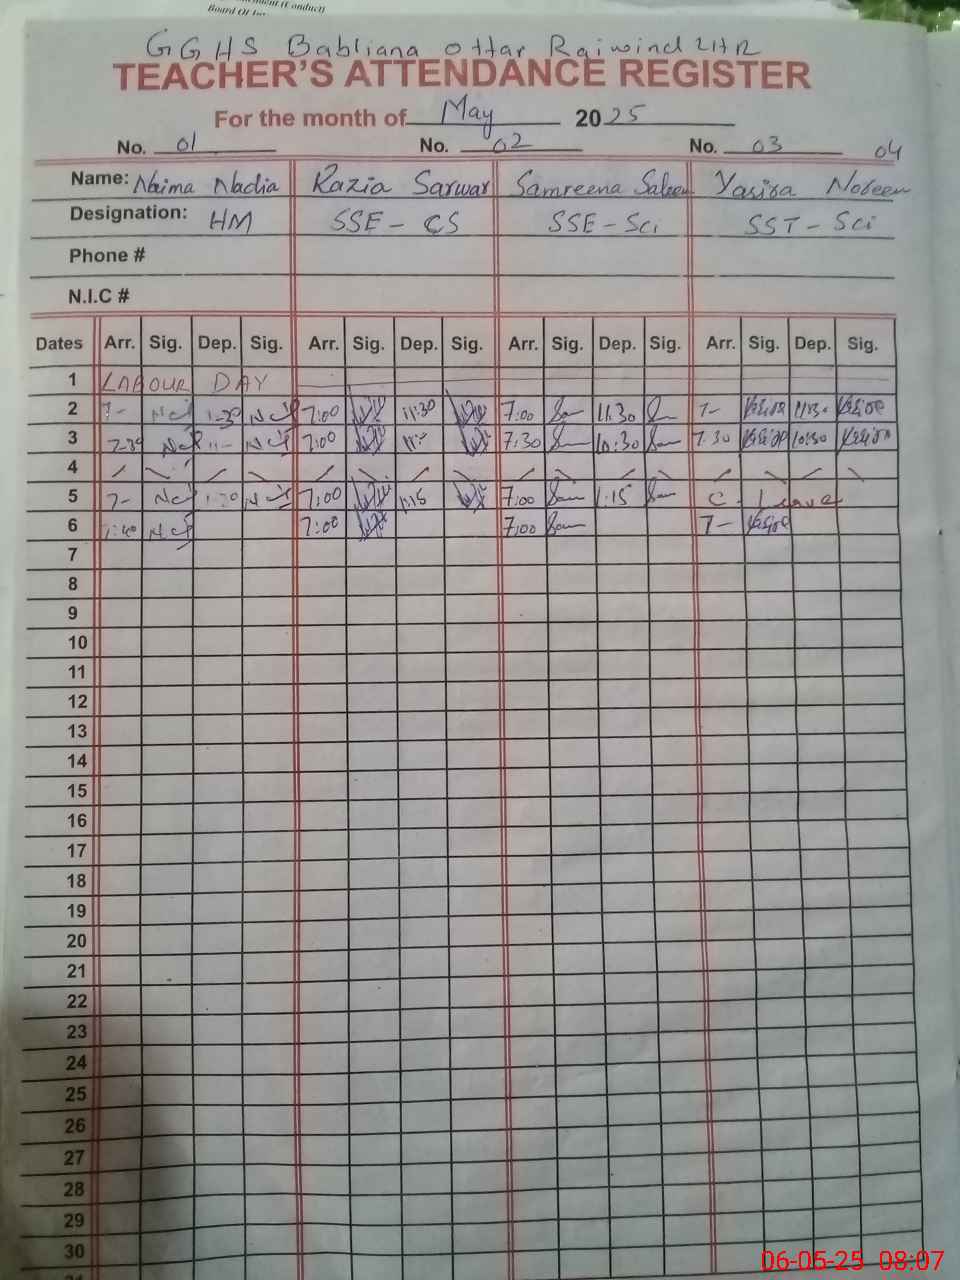 Board Of
GGHS Babliana Ottar Raiwind LHR
TEACHER'S ATTENDANCE REGISTER
For the month of May 2025
No. 01 No. 02 No. 03 04
Name: Naima Nadia Razia Sarwar Samreena Saleem Yasira Noreen
Designation: HM SSE - CS SSE - Sci SST - Sci
Phone #
N.I.C #
Dates Arr. Sig. Dep. Sig. Arr. Sig. Dep. Sig. Arr. Sig. Dep. Sig. Arr. Sig. Dep. Sig.
1 LABOUR DAY
2 7- 7:00 11:30 7:00 11:30 7- 11:30
3 7-30 11- 7:00 11:- 7:30 10:30 7:30 10:30
4
5 7- 7:00 1:15 7:00 1:15 C. Leave
6 7:40 7:00 7:00 7-
7
8
9
10
11
12
13
14
15
16
17
18
19
20
21
22
23
24
25
26
27
28
29
30
06-05-25 08:07